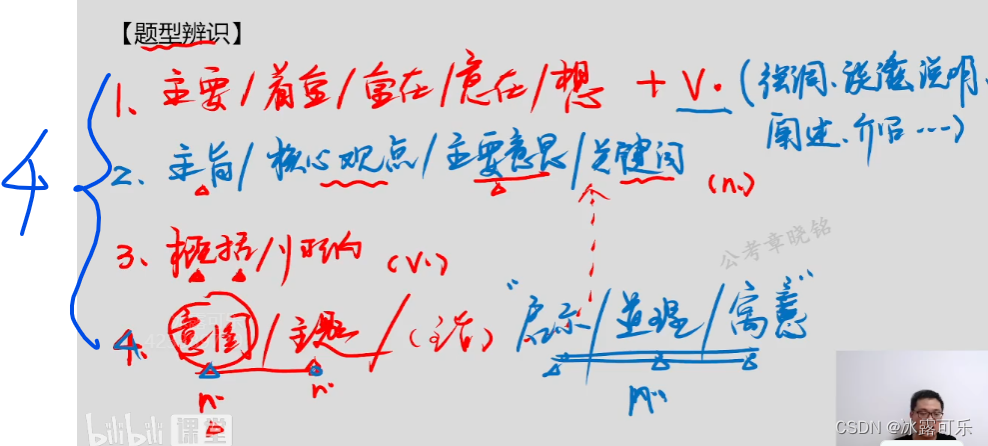 【题型辨识】
1、主要/着重/重在/意在/想 + V.(强调、谈论、说明、
阐述、介绍……)
4
2、主旨/核心观点/主要意思/关键词 (n.)
3、概括/归纳 (v.)
4、意图/主题/(主旨) "启示/道理/寓意"
n. n.
公考章晓铭
bilibili 课堂
CSDN @冰露可乐